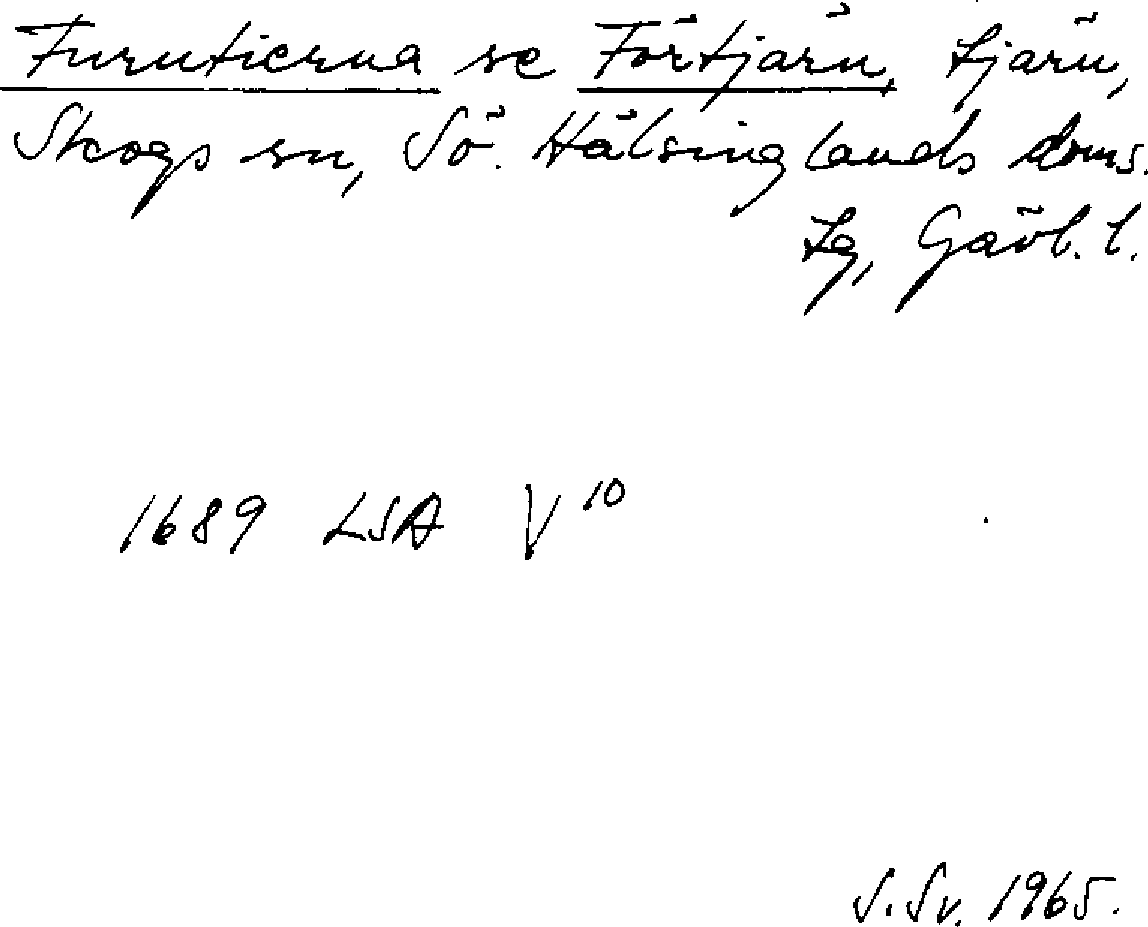 Furutierna se Förtjärn, tjärn,
Skogs sn, Sö. Hälsinglands doms.
tg, Gävl. l.
1689 LSA V 10
S. Sv. 1965.